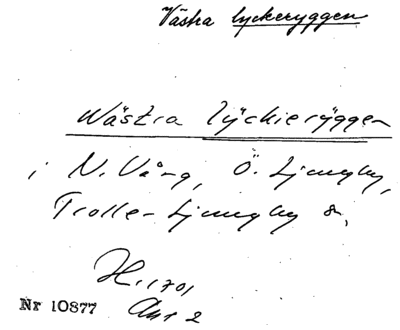 Västra lyckeryggen
Wästra lÿckierÿggen
i N. Vång, Ö. Ljungby,
Trolle-Ljungby s.,
H. 1701
Akt 2
Nr 10877